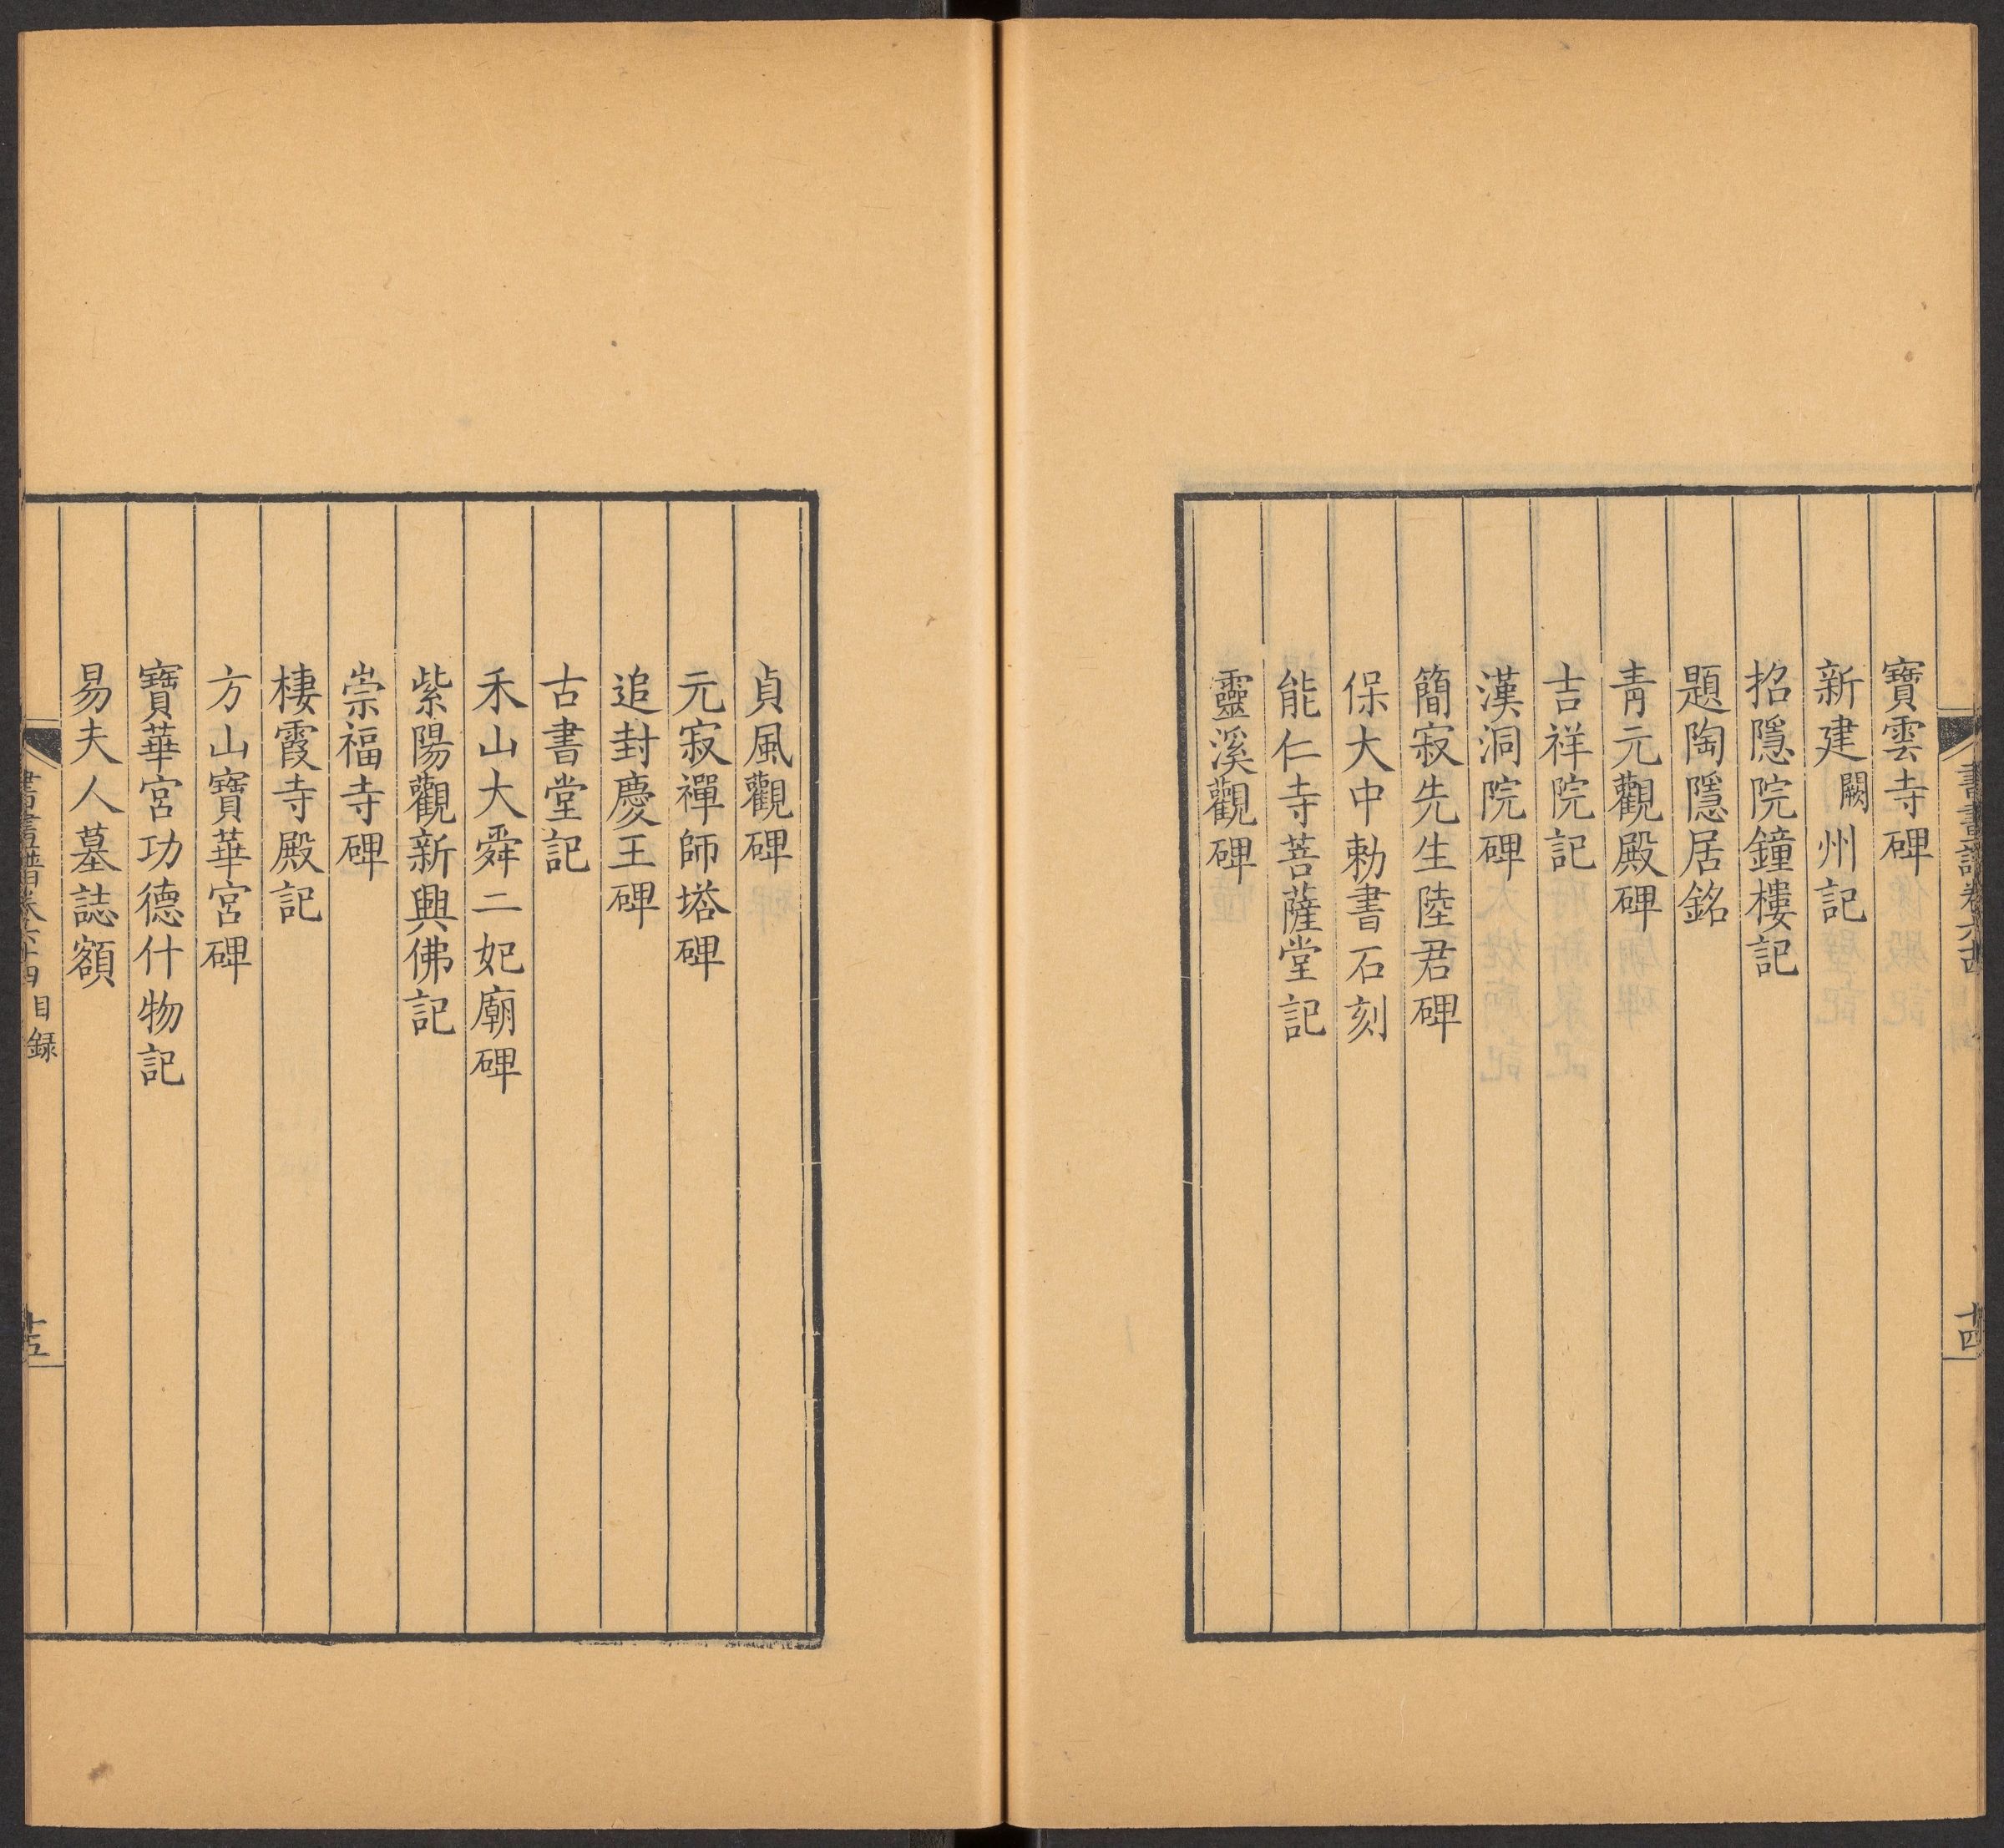 書畫譜卷六十四
十四
寶雲寺碑
新建闕州記
招隱院鐘樓記
題陶隱居銘
青元觀殿碑
吉祥院記
漢洞院碑
簡寂先生陸君碑
保大中勅書石刻
能仁寺菩薩堂記
靈溪觀碑
貞風觀碑
元寂禪師塔碑
追封慶王碑
古書堂記
禾山大舜二妃廟碑
紫陽觀新興佛記
崇福寺碑
棲霞寺殿記
方山寶華宮碑
寶華宮功德什物記
易夫人墓誌額
書畫譜卷六十四 目録
十五